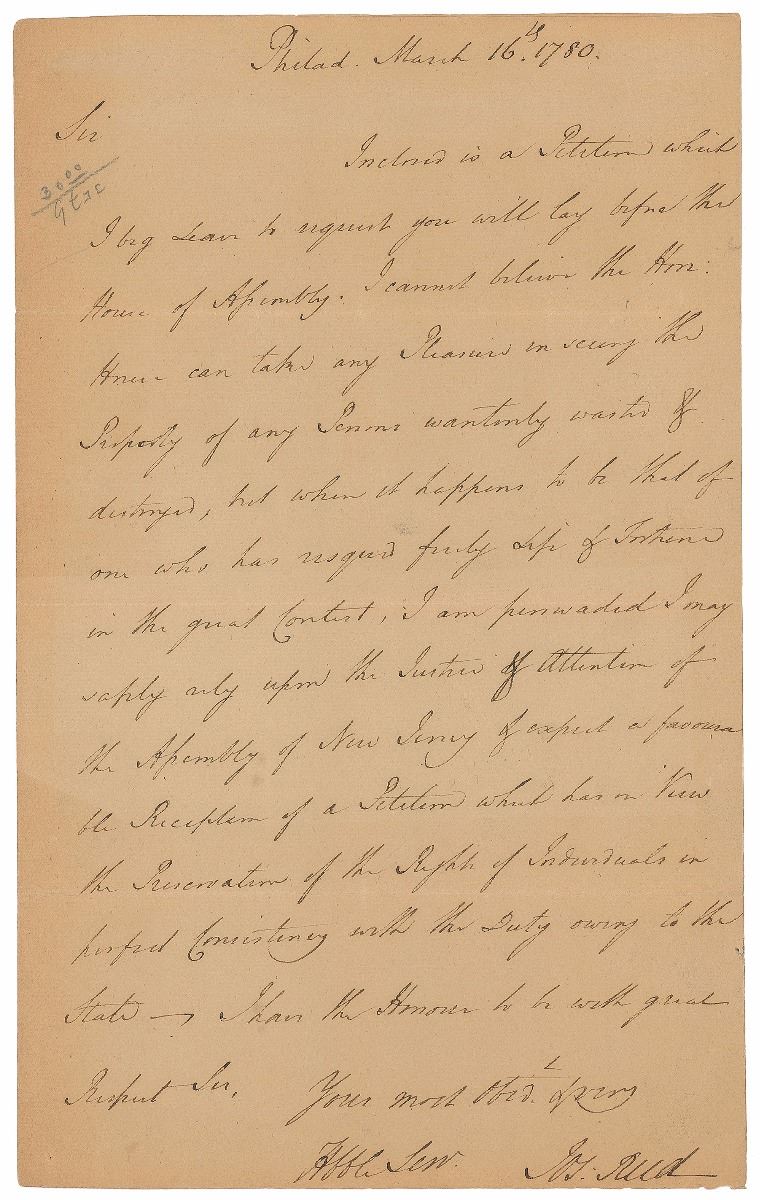 Philad. March 16th. 1780.
Sir
Inclosed is a Petition which
3000
I beg Leave to request you will lay before the
House of Assembly. I cannot believe the Hon:
House can take any Pleasure in seeing the
Property of any Persons wantonly wasted &
destroyed, but when it happens to be that of
one who has risqued freely Life & Fortune
in the great Contest, I am perswaded I may
safely rely upon the Justice & Attention of
the Assembly of New Jersey & expect a favoura
ble Reception of a Petition which has in View
the Preservation of the Rights of Individuals in
perfect Consistency with the Duty owing to the
State — I have the Honour to be with great
Respect Sir,
Your most Obedt. & very
Hble Serv.
Jos: Reed